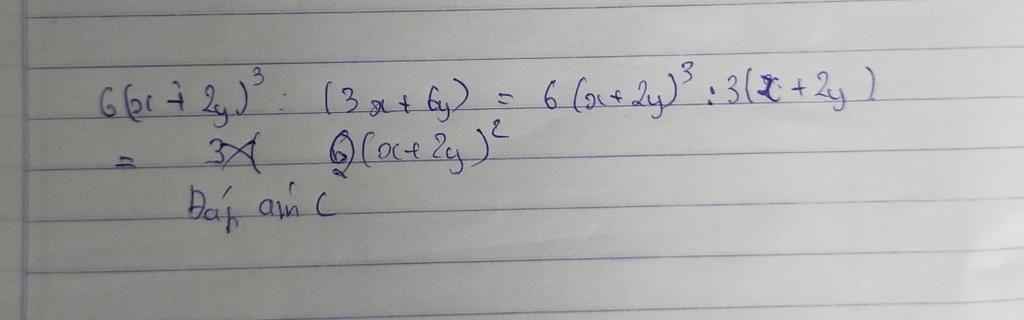 6(x + 2y)³ : (3x + 6y) = 6(x + 2y)³ : 3(x + 2y)
= 2(x + 2y)²
Đáp án C